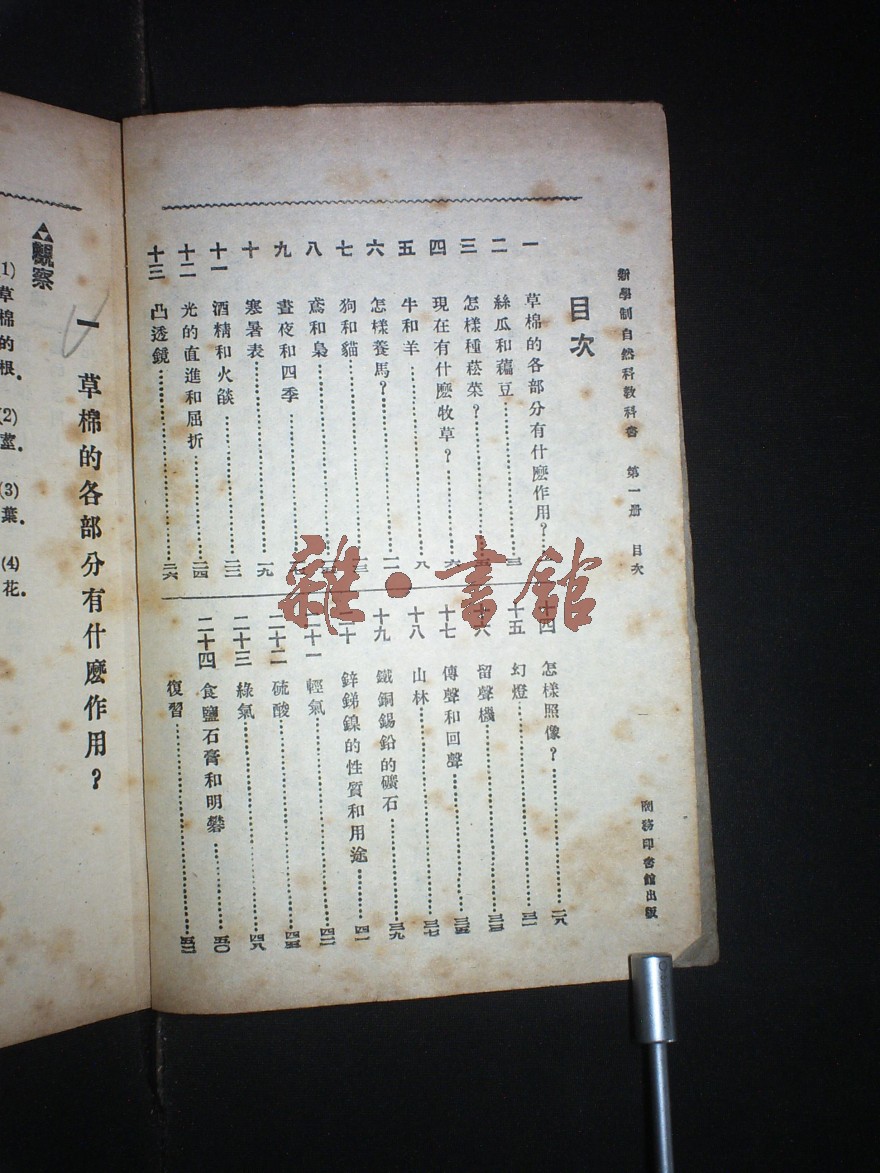 新學制自然科教科書 第一册 目次 一 商務印書館出版
目次
一 草棉的各部分有什麽作用？
二 絲瓜和藊豆 三
三 怎樣種菘菜？ 五
四 現在有什麽牧草？ 六
五 牛和羊 八
六 怎樣養馬？ 一一
七 狗和貓 一三
八 鳶和梟
九 晝夜和四季
十 寒暑表 一九
十一 酒精和火燄 二二
十二 光的直進和屈折 二四
十三 凸透鏡 二六
十四 怎樣照像？ 二八
十五 幻燈 三一
十六 留聲機 三三
十七 傳聲和回聲 三五
十八 山林 三七
十九 鐵銅錫鉛的礦石 三九
二十 鋅銻鎳的性質和用途 四一
二十一 輕氣 四二
二十二 硫酸 四五
二十三 綠氣 四八
二十四 食鹽石膏和明礬 五〇
復習 五二
一 草棉的各部分有什麽作用？
觀察
(1)草棉的根. (2)莖. (3)葉. (4)花.
雜·書館